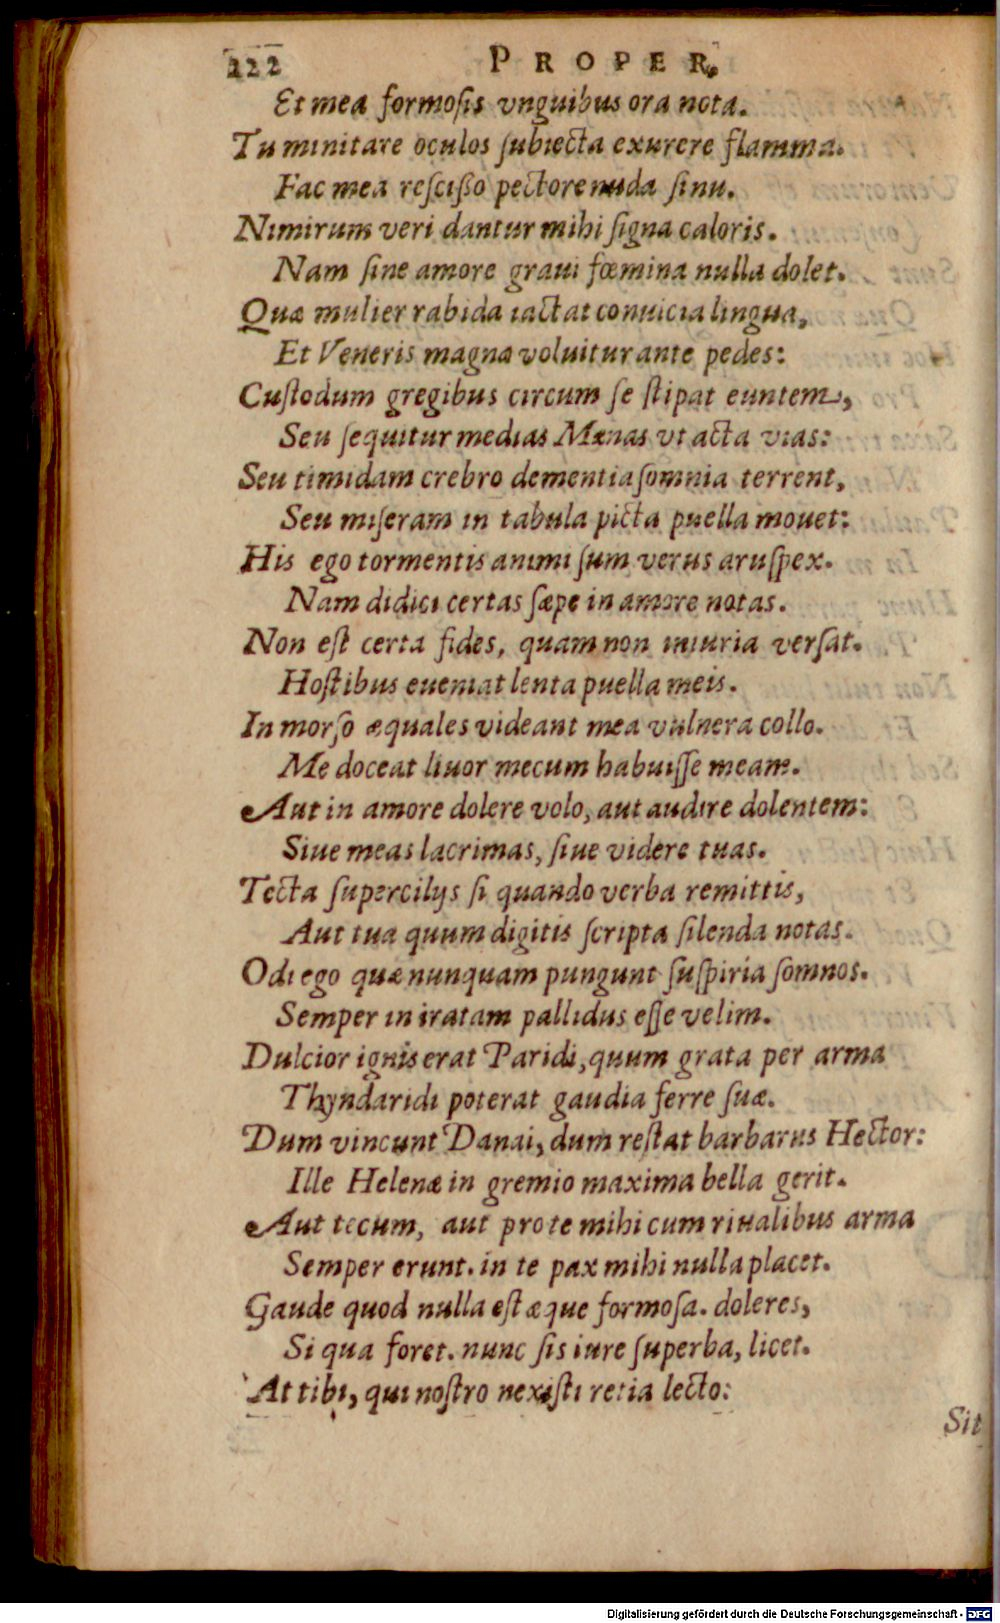 222 PROPER.
Et mea formosis vnguibus ora nota.
Tu minitare oculos subiecta exurere flamma.
Fac mea rescißo pectore nuda sinu.
Nimirum veri dantur mihi signa caloris.
Nam sine amore graui fœmina nulla dolet.
Quæ mulier rabida iactat conuicia lingua,
Et Veneris magnæ voluitur ante pedes:
Custodum gregibus circum se stipat euntem,
Seu sequitur medias Mænas vt acta vias:
Seu timidam crebro dementia somnia terrent,
Seu miseram in tabula picta puella mouet:
His ego tormentis animi sum verus aruspex.
Nam didici certas sæpe in amore notas.
Non est certa fides, quam non iniuria versat.
Hostibus eueniat lenta puella meis.
In morso æquales videant mea vulnera collo.
Me doceat liuor mecum habuisse meam.
Aut in amore dolere volo, aut audire dolentem:
Siue meas lacrimas, siue videre tuas.
Tecta supercilijs si quando verba remittis,
Aut tua quum digitis scripta silenda notas.
Odi ego quæ nunquam pungunt suspiria somnos.
Semper in iratam pallidus esse velim.
Dulcior ignis erat Paridi, quum grata per arma
Thyndaridi poterat gaudia ferre suæ.
Dum vincunt Danai, dum restat barbarus Hector:
Ille Helenæ in gremio maxima bella gerit.
Aut tecum, aut pro te mihi cum riualibus arma
Semper erunt. in te pax mihi nulla placet.
Gaude quod nulla est æque formosa. doleres,
Si qua foret. nunc sis iure superba, licet.
At tibi, qui nostro nexisti retia lecto:
Sit
Digitalisierung gefördert durch die Deutsche Forschungsgemeinschaft - DFG